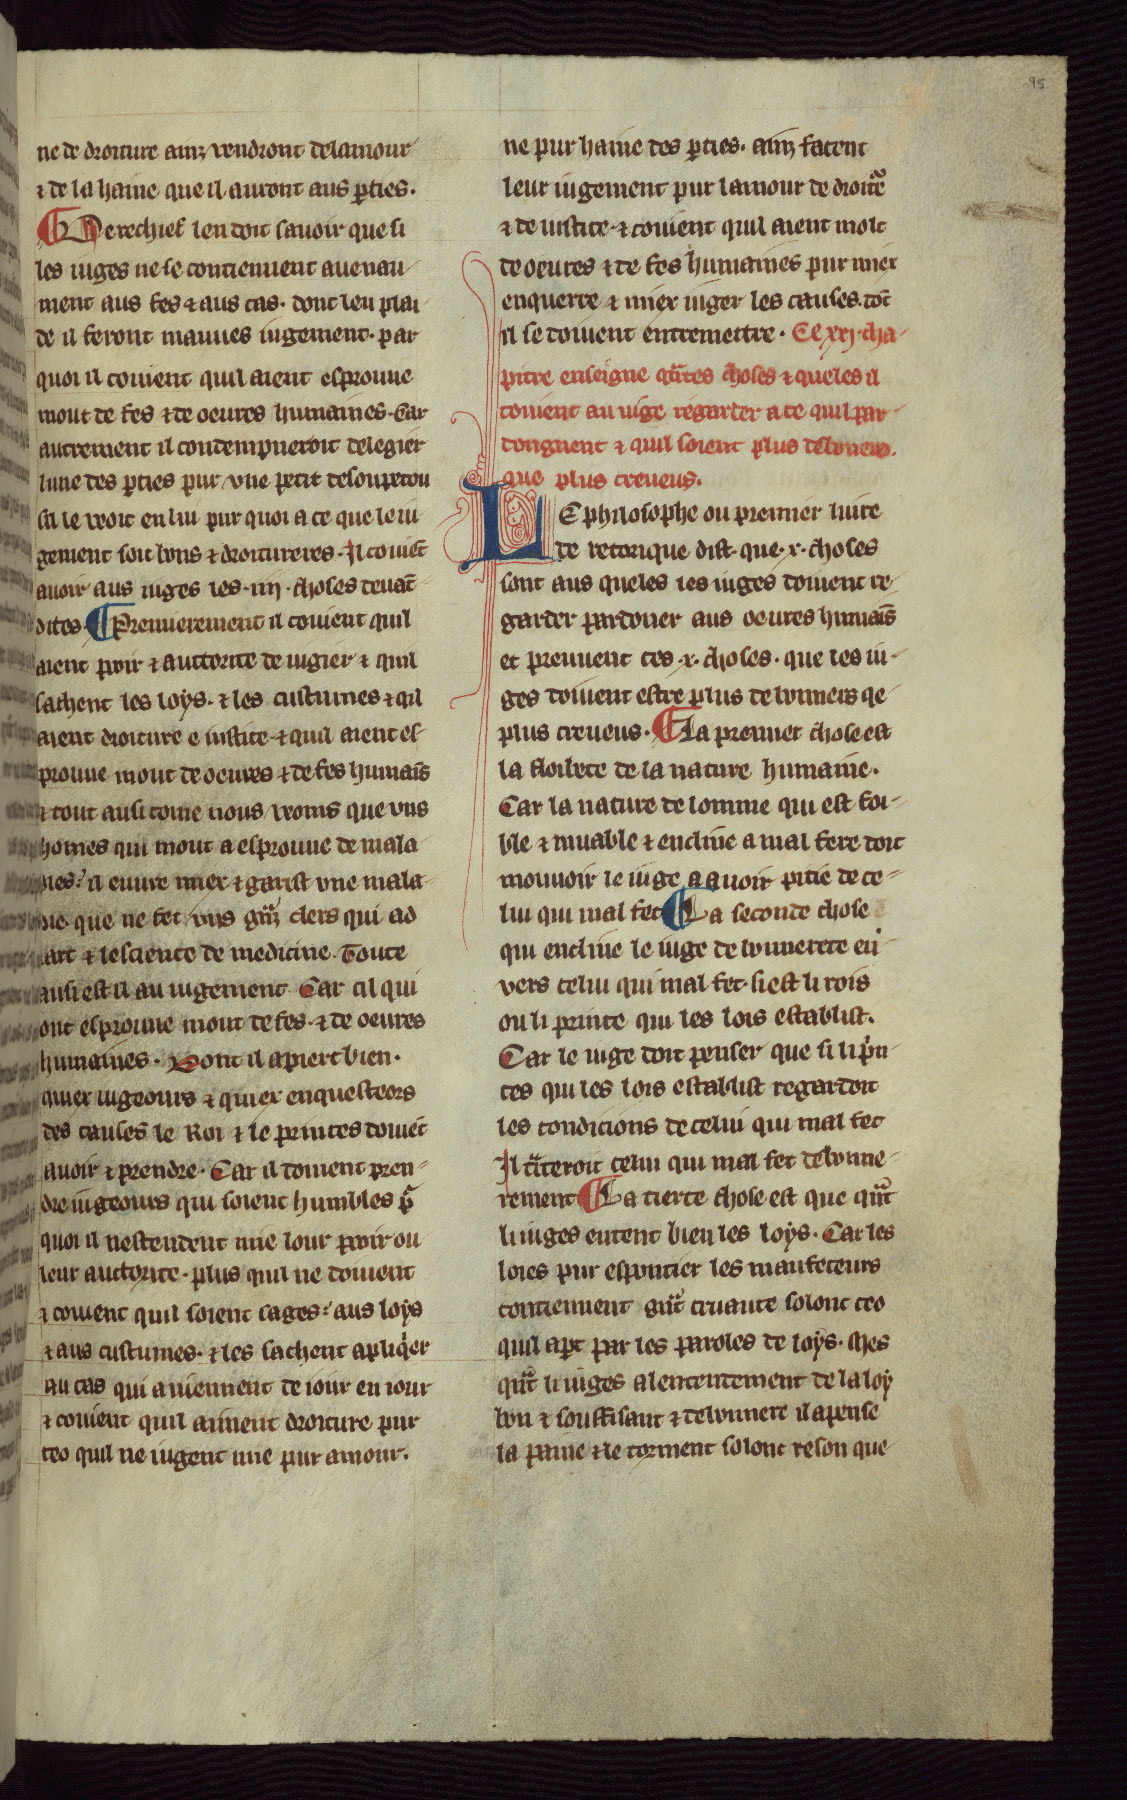 95
ne de droiture ainz vendront de lamour
⁊ de la haine que il auront aus ꝑties.
Derechief len doit sauoir que si
les iuges ne se contienuent auenau
ment aus fes ⁊ aus cas. dont leu plai
de il feront mauues iugement. par
quoi il couient quil aient esprouue
mout de fes ⁊ de oeures humaines. Car
autrement il condempneroit de legier
lune des ꝑties pur vne petit de soupecou
sil le veoit en lui pur quoi a ce que le iu
gement soit bons ⁊ droitureres. Il couiēt
auoir aus iuges les .iiij. choses deuāt
dites. Premierement il couient quil
aient poir ⁊ auctorite de iugier ⁊ quil
sachent les loys. ⁊ les custumes ⁊ qil
aient droiture e iustice ⁊ quil aient es
prouue mout de oeures ⁊ de fes humaīs
⁊ tout ausi come nous veoms que vns
homes qui mout a esprouue de mala
dies: il euure miex ⁊ garist vne mala
die. que ne fet vns grāz clers qui ad
art ⁊ lescience de medicine. Toute
ausi est il au iugement Car cil qui
ont esprouue mout de fes. ⁊ de oeures
humaines. Dont il apiert bien.
quiex iugeours ⁊ quiex enquesteors
des causes le Roi ⁊ le princes doiuēt
auoir ⁊ prendre. Car il doiuent pren
dre iugeours qui soient humbles pᷓ
quoi il nestendent mie lour poir ou
leur auctorite. plus quil ne doiuent
⁊ couient quil soient sages: aus loys
⁊ aus custumes. ⁊ les sachent apliqͥer
au cas qui auiennent de iour en iour
⁊ couient quil aiment droiture pur
ceo quil ne iugent mie pur amour.
ne pur haine des ꝑties. ainz facent
leur iugement pur lamour de droitᷓe
⁊ de iustice. ⁊ couient quil aient molt
de oeures ⁊ de fes humaines pur miex
enquerre ⁊ miex iuger les causes. dōt
il se doiuent entremettre. Ce xxj. cha
pitre enseigne qᷓntes choses ⁊ queles il
couient au iuge regarder a ce quil par
donguent ⁊ quil soient plus debonere.
que plus crueus.
LE philosophe ou premier liure
de retorique dist. que .x. choses
sont aus queles les iuges doiuent re
garder pardoner aus oeures humaīs
et preuuent ces .x. choses. que les iu
ges doiuent estre plus debonners qe
plus crueus. La premiet chose est
la floiblece de la nature humaine.
Car la nature de lomme qui est foi
ble ⁊ muable ⁊ encline a mal fere doit
mouuoir le iuge a auoir pitie de ce
lui qui mal fet La seconde chose
qui encline le iuge debonnerete en
vers celui qui mal fet. si est li rois
ou li prince qui les lois establist.
Car le iuge doit penser que si li pͥn
ces qui les lois establist regardoit
les condicions de celui qui mal fet
Il tᷓiteroit celui qui mal fet debonne
rement La tierce chose est que qᷓnt
li iuges entent bien les loys. Car les
loies pur espontier les maufeteurs
contiennent gᷓnt cruaute solonc ceo
quil apt par les paroles de loys. Mes
qᷓnt li iuges a lentendement de la loy
bon ⁊ souffisant ⁊ debonnere il apense
la paine ⁊ le torment solonc reson que